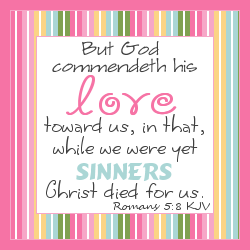 But God
commendeth his
love
toward us, in that,
while we were yet
SINNERS
Christ died for us.
Romans 5:8 KJV